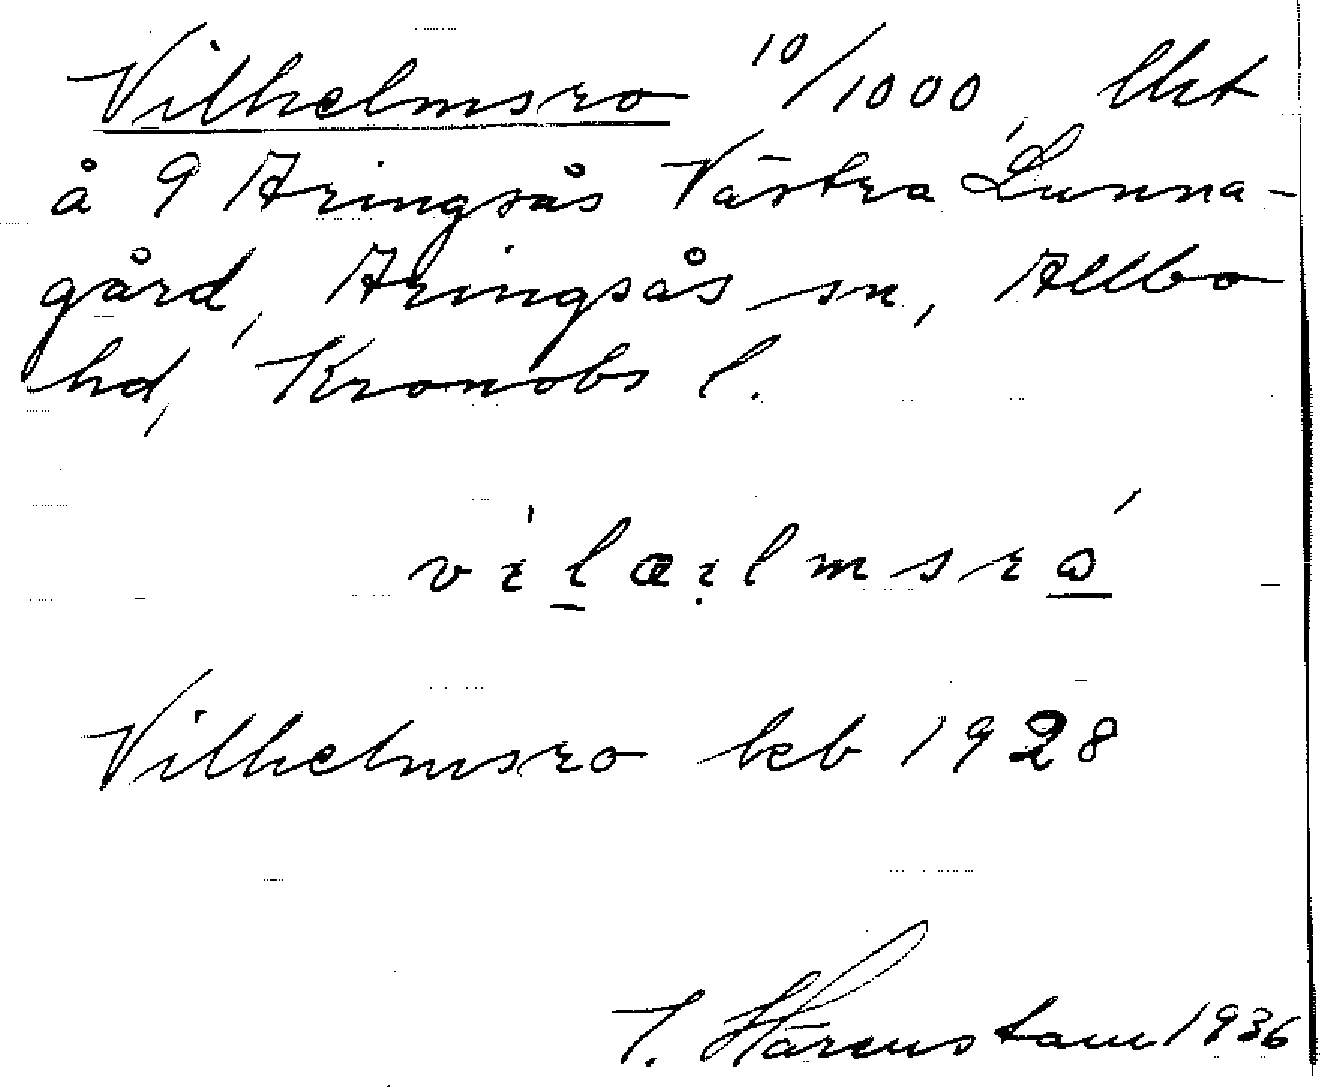 Vilhelmsro 10/1000, lht
å 9 Aringsås Västra Lunna-
gård, Aringsås sn, Allbo
hd, Kronobs l.
vilæilmsrό
Vilhelmsro keb 1928
J. Härenstam 1936